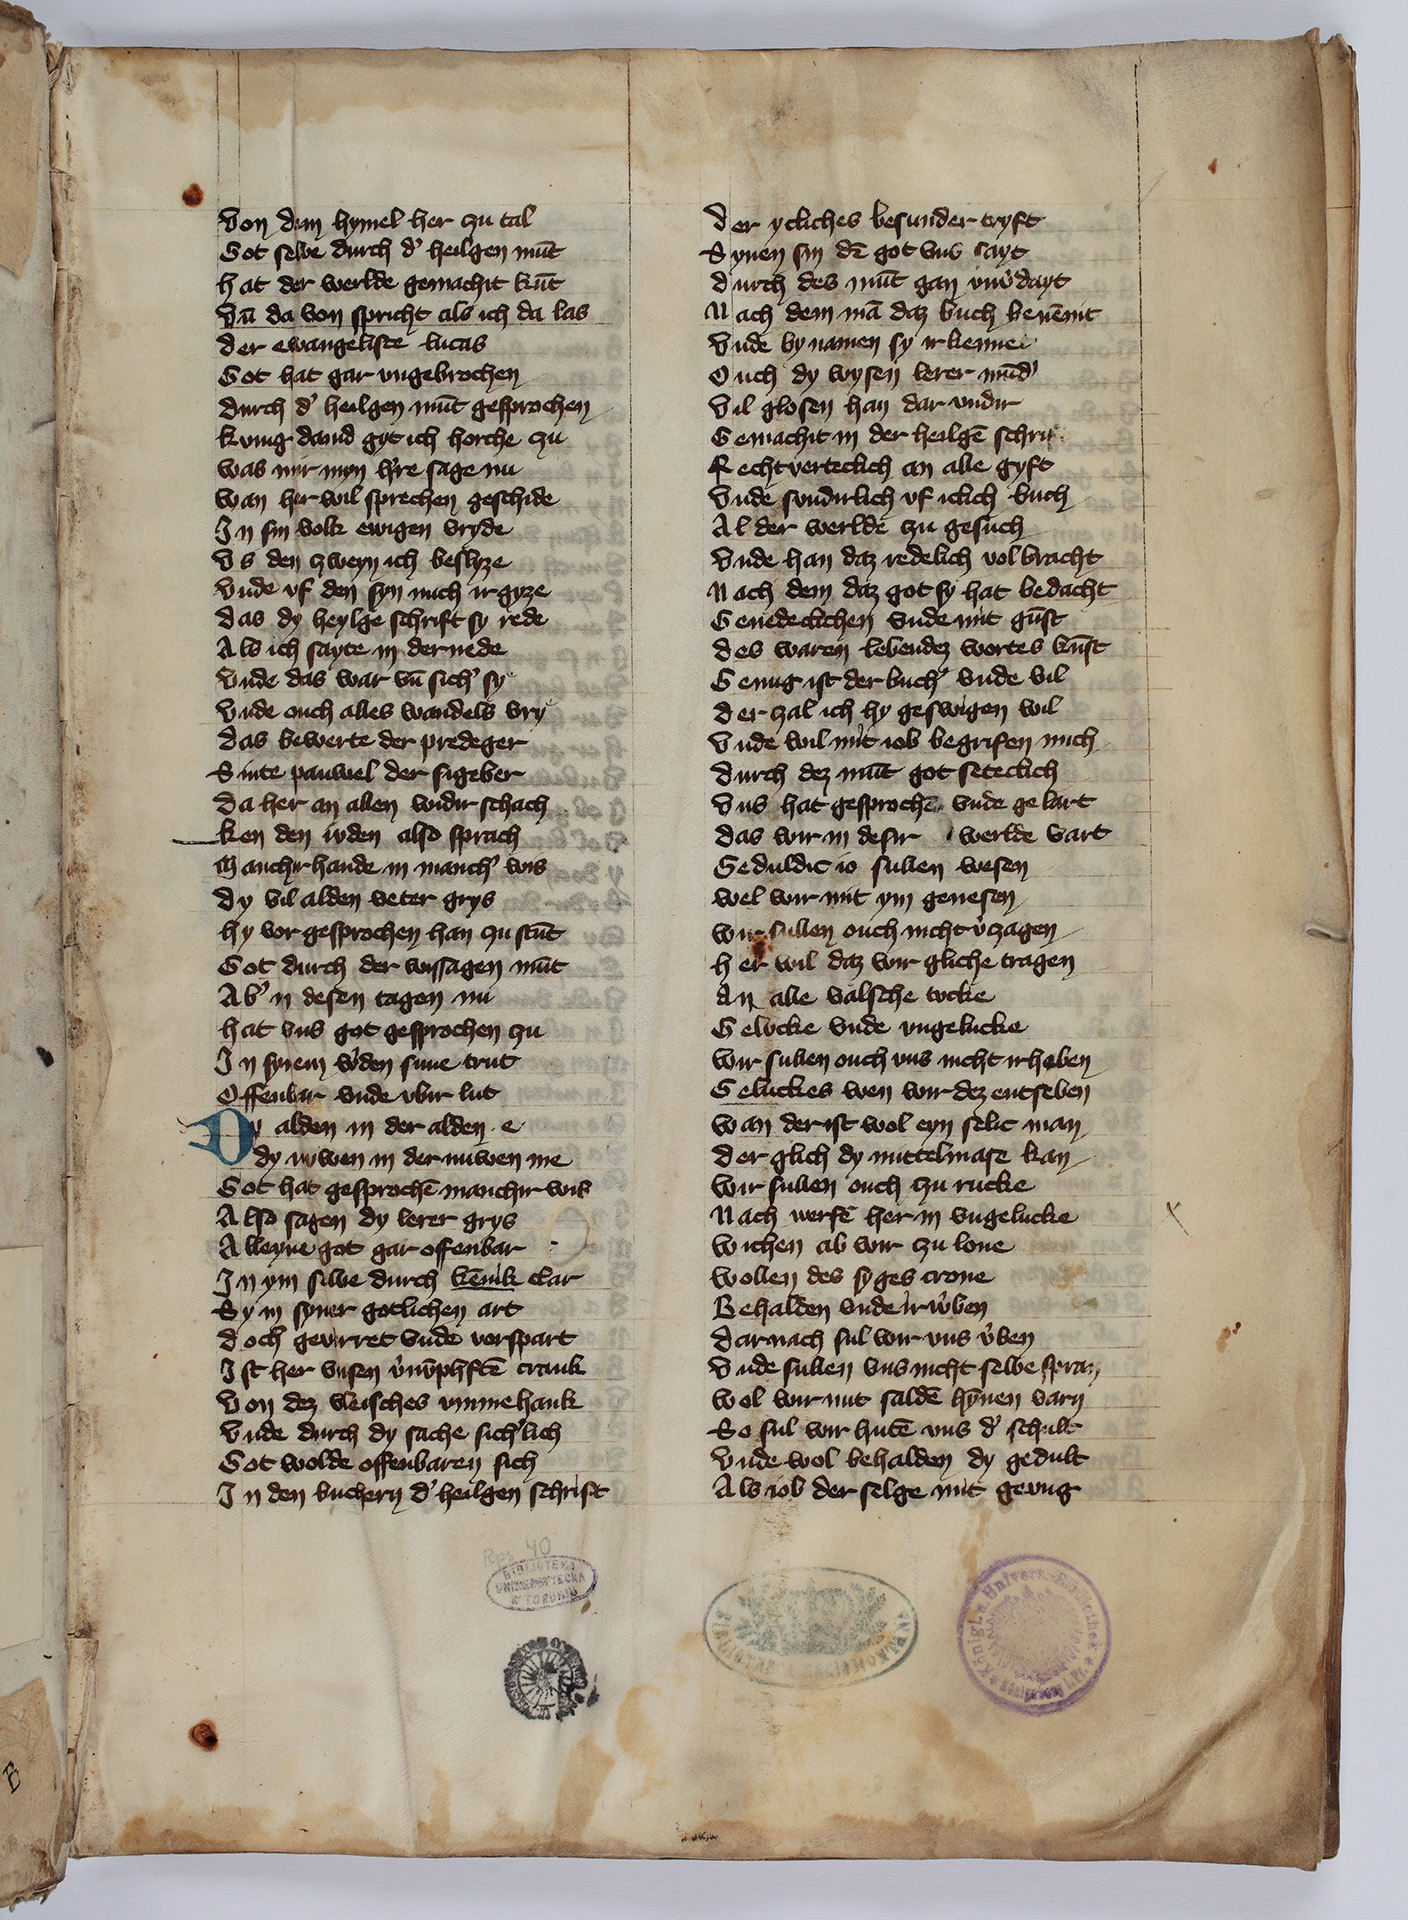 Von dem hymel her zu tal
Got selbe durch d' heilgen mūt
hat der werlde gemachit kūt
Vn̄ da von spricht als ich da las
der ewangeliste lucas
Got hat gar vngebrochen
durch d' heilgen mūt gesprochen
kvnig dauid gyt ich horche zu
was mir myn h're sage nu
wan her wil sprechen geschide
In sin volk ewigen vryde
Vs den zweyn ich beslyze
Vnde vf den syn mich irgyze
das dy heylge schrift sy rede
Als ich sayte in der nede
Vnde das war vn̄ sich' sy
Vnde ouch alles wandels vry
das bewerte der prediger
Sinte pauwel der sigeber
da her an allen widirschach
ken den iuden also sprach
Manchirhande in manch' wis
dy vil alden veter grys
hy vor gesprochen han zu stūt
Got durch der wissagen mūt
Ab' in desen tagen nu
hat vns got gesprochen zu
In synem w'den sune trut
Offenbar vnde vbir lut
Dy alden in der alden e
dy nuwen in der nuwen me
Got hat gesprochē manchir wis
Also sagen dy lerer grys
Alleyne got gar offenbar
In ym silbe durch kēnik clar
Sy in syner gotlichen art
doch gevirret vnde vorspart
Ist her vnsen v'nv̄phftē crank
Von dez vleisches vmmehank
Vnde durch dy sache sich'lich
Got wolde offenbaren sich
In den buchern d' heilgen schrift
der ycliches besunder tryft
Synen sin dē got vns sayt
durch des mūt gan vnv'dayt
Nach dem mā daz buch benēnit
Vnde by namen sy irkennet
Ouch dy wysen lerer mūd'
Vil glosen han dar vndir
Gemachit in der heilgē schrift
Rechtverteclich an alle gyft
Vnde sundirlich vf iclich buch
Al der werlde zu gesuch
Vnde han daz redelich volbracht
Nach dem daz got sy hat bedacht
Genedeclichen vnde mit gūst
des waren lebendez wortes kūst
Genug ist der buch' vnde vil
der zal ich hy geswigen wil
Vnde wil mit iob begrifen mich
durch dez mūt got seteclich
Vns hat gesprochē vnde gelart
das wir in desir werlde vart
Geduldic io sullen wesen
wel wir mit ym genesen
wir sullen ouch nicht v'zagen
her wil daz wir gliche tragen
An alle valsche tucke
Gelucke vnde vngelucke
wir sullen ouch vns nicht irheben
Geluckes wen wir dez entseben
wan der ist wol eyn selic man
der glich dy mittelmase kan
wir sullen ouch zu rucke
Nach werfē her in vngelucke
wichen ab wir zu lone
wollen des syges crone
Behalden vnde irw'ben
darnach sul wir vns v'ben
Vnde sullen vns nicht selbe sparn
wol wir mit saldē hynen varn
So sul wir hutē vns d' schult
Vnde wol behalden dy gedult
Als iob der selge mit genug
Rps 40
BIBLIOTEKA
UNIWERSYTECKA
W TORUNIU
Königl. u. Univers.-Bibliothek